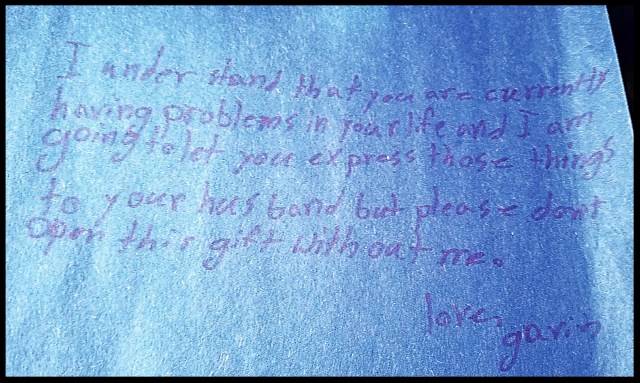 I under stand that you are currently
having problems in your life and I am
going to let you express those things
to your husband but please dont
open this gift without me.
love,
gavin